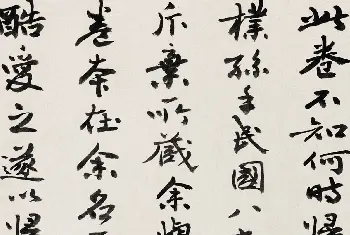 此卷不知何時歸
樸孫手民國八
斥棄所藏余
卷在余名
酷愛之遂以歸